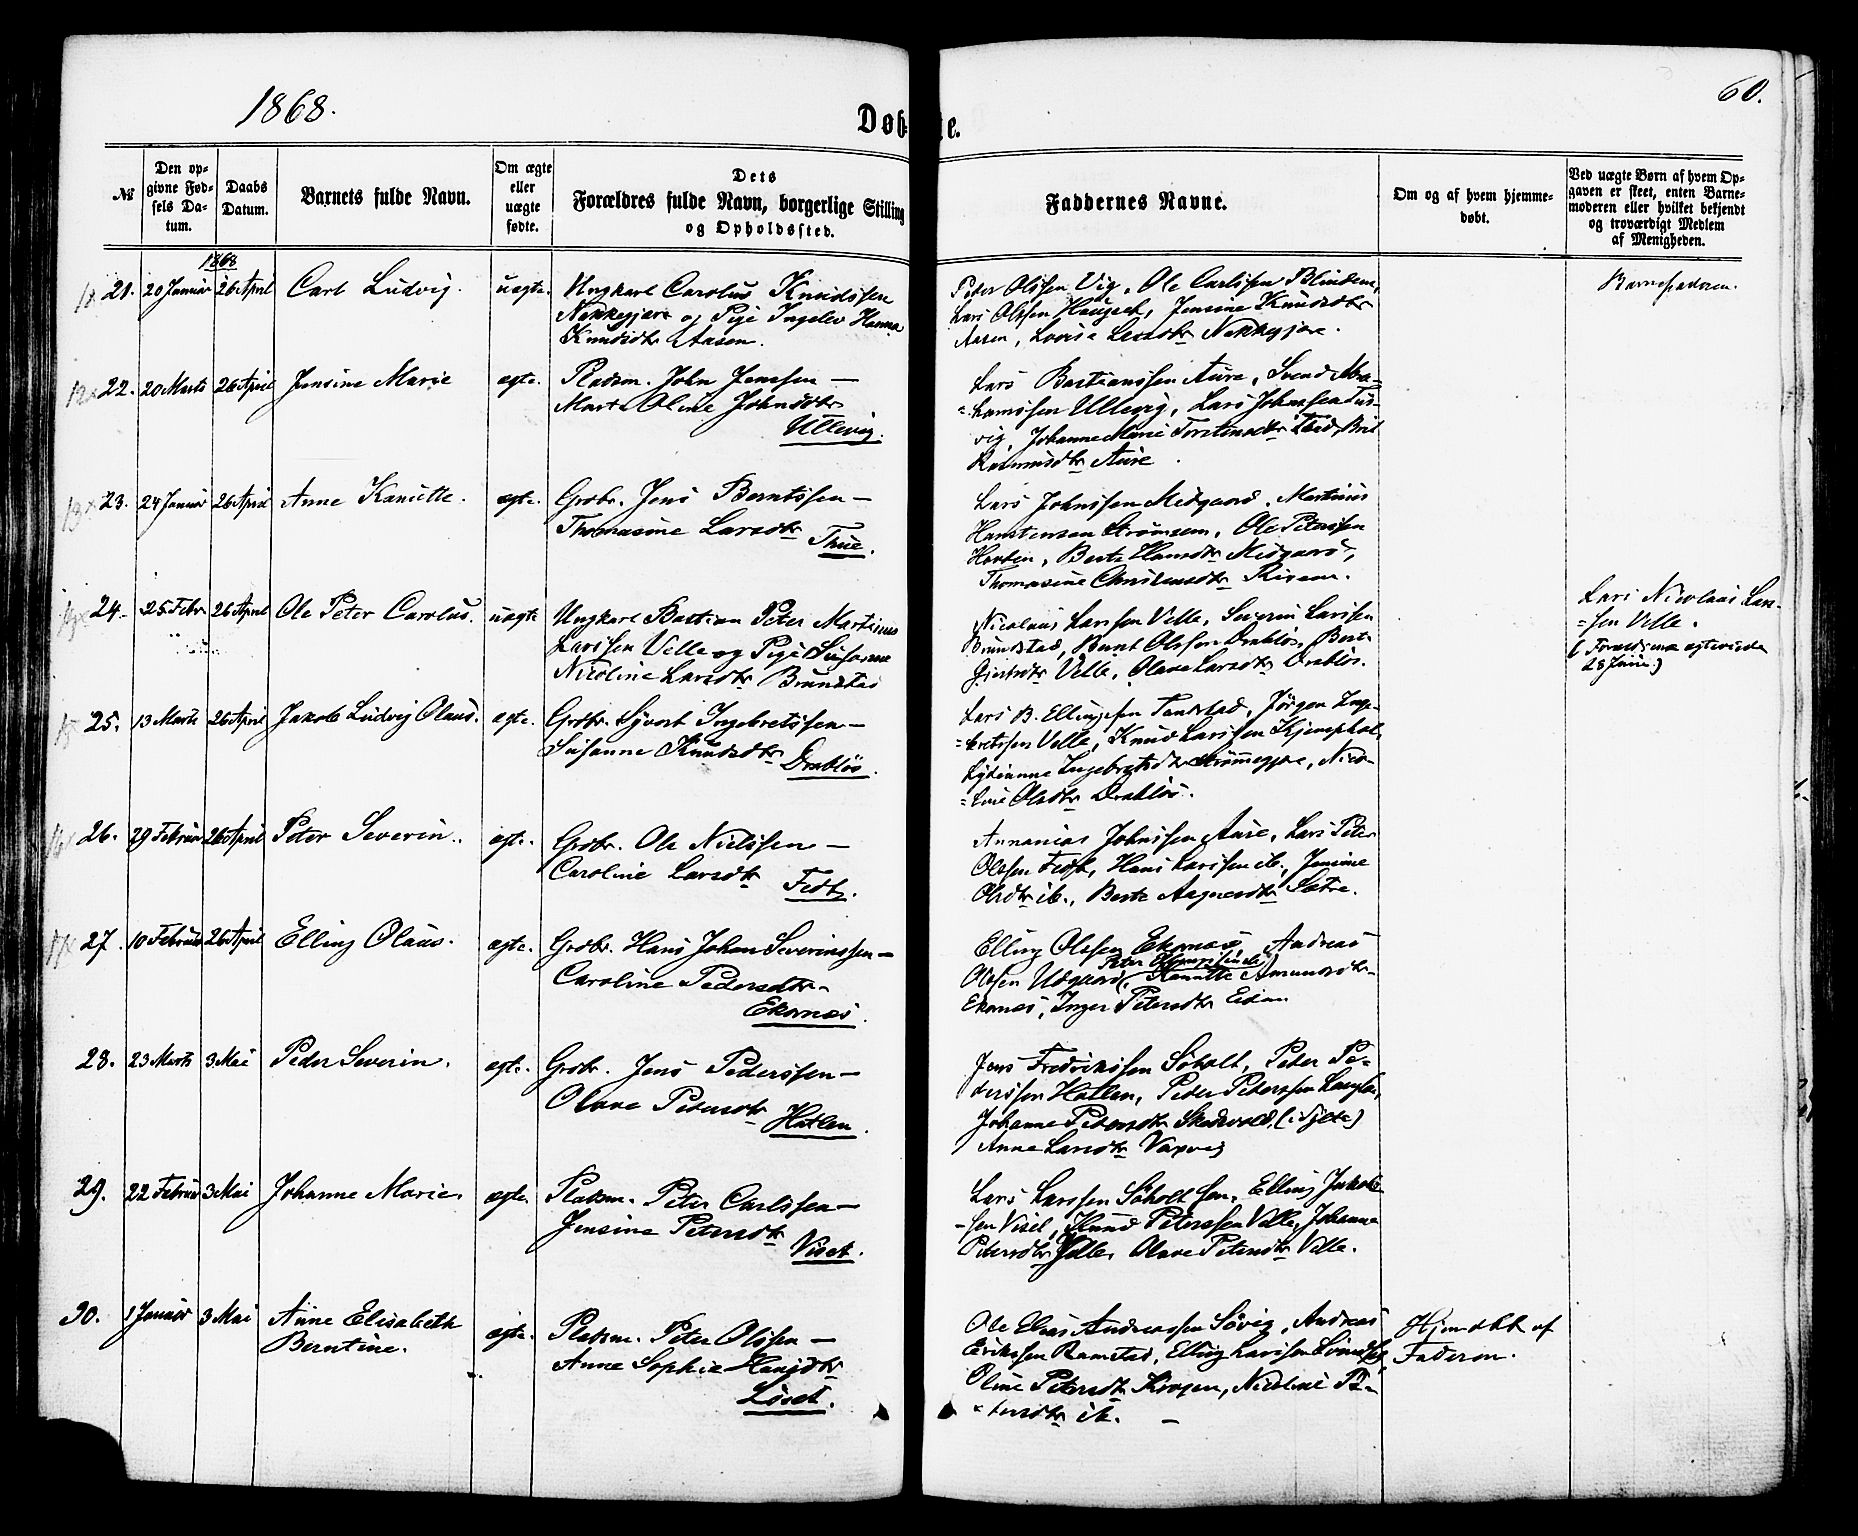 1868.
60.
Døb
te.
№
Den opgivne Fødsels Datum.
Daabs Datum.
Barnets fulde Navn.
Om ægte eller uægte fødte.
Dets Forældres fulde Navn, borgerlige Stilling og Opholdssted.
Faddernes Navne.
Om og af hvem hjemmedøbt.
Ved uægte Børn af hvem Opgaven er skeet, enten Barnemoderen eller hvilket bekjendt og troværdigt Medlem af Menigheden.
1868
21. 20 Januar 26 April Carl Ludvig. uægte.
Ungkarl Carolus Knudssen
Nakkegjære og Pige Ingelev Hanna
Knudsdtr Aasen.
Peter Olssen Vig, Ole Carlssen Blindem,
Lars Olssen Haugset, Jensine Knudsdtr
Aasen, Lovise Larsdtr Nakkegjære.
Barnefaderen.
22. 20 Marts 26 April Jensine Marie ægte.
Pladsm. John Jenssen —
Marte Oline Johnsdtr
Ullevig.
Lars Bastianssen Aure, Svend Abra-
=hamssen Ullevig, Lars Johnssen Tus-
vig, Johanne Marie Torstensdtr Brit
Rasmusdtr Aure.
23. 24 Januar 26 April Anne Kanutte. ægte.
Grdbr. Jens Berntssen —
Thomasine Larsdtr
Thue.
Lars Johnssen Midgaard, Martinus
Hanstensen Strømsem, Ole Peterssen
Hovten, Berte Hansdtr Midgaard,
Thomasine Christensdtr Risem.
24. 25 Febr 26 April Ole Peter Carolus. uægte
Ungkarl Bastian Peter Martinus
Larssen Velle og Pige Susanne
Nicoline Larsdtr Brundstad
Nicolaus Larssen Velle, Severin Larssen
Brundstad, Bernt Olssen Drabløs, Berte
Velle, Olave Larsdtr Drabløs.
Lars Nicolaus Lars-
=sen Velle.
(Forældrene ægteviede
28 Juni.)
25. 13 Marts 26 April Jakob Ludvig Olaus. ægte.
Grdbr. Syvert Ingebretssen —
Susanne Knudsdtr
Drabløs.
Lars B. Ellingssen Tandstad, Jørgen Inge-
=bretssen Velle, Knud Larssen Kjemphol,
Lydianne Ingebretsdtr Strømmegjære, Nico-
=line Olsdtr Drabløs.
26. 29 Februar 26 April Peter Severin. ægte.
Grdbr. Ole Nielssen —
Caroline Larsdtr
Fedt.
Annanias Johnssen Aure, Lars Peter
Olssen Fedt, Hans Larssen ib., Jensine
Olsdtr ib., Berte Aagnesdtr Sætre.
27. 10 Februar 26 April Elling Olaus. ægte.
Grdbr. Hans Johan Severinssen —
Caroline Pedersdtr
Ekornæs.
Elling Olssen Ekornæs, Andreas
Olssen Udgaard, Kanutte Amundsdtr
Ekornæs, Inger Petersdtr Eidem
28. 23 Marts 3 Mai Peder Severin. ægte.
Grdbr. Jens Pederssen —
Olave Petersdtr
Hatlen.
Jens Fredrikssen Søholt, Peter Pe-
derssen Hatlen, Peter Peterssen Langlo,
Johanne Petersdtr Skodsvold (i Sylte)
Anne Larsdtr Vaxvig
29. 22 Februar 3 Mai Johanne Marie. ægte.
Pladsm. Peter Carlssen —
Jensine Petersdtr
Viset.
Lars Larssen Søholt Elling Jakob-
=sen Viset, Knud Peterssen Velle, Johanne
Petersdtr Velle, Olave Petersdtr Velle.
30. 1 Januar 3 Mai Anne Elisabeth ægte.
Berntine.
Pladsm. Peter Olssen —
Anne Sophie Hansdtr
Løset.
Ole Elias Andreassen Søvig, Andreas
Erikssen Ramstad, Elling Larssen
Oline Petersdtr Krogen, Nicoline Pe-
=tersdtr ib. —
Hjemdøbt af
Faderen.